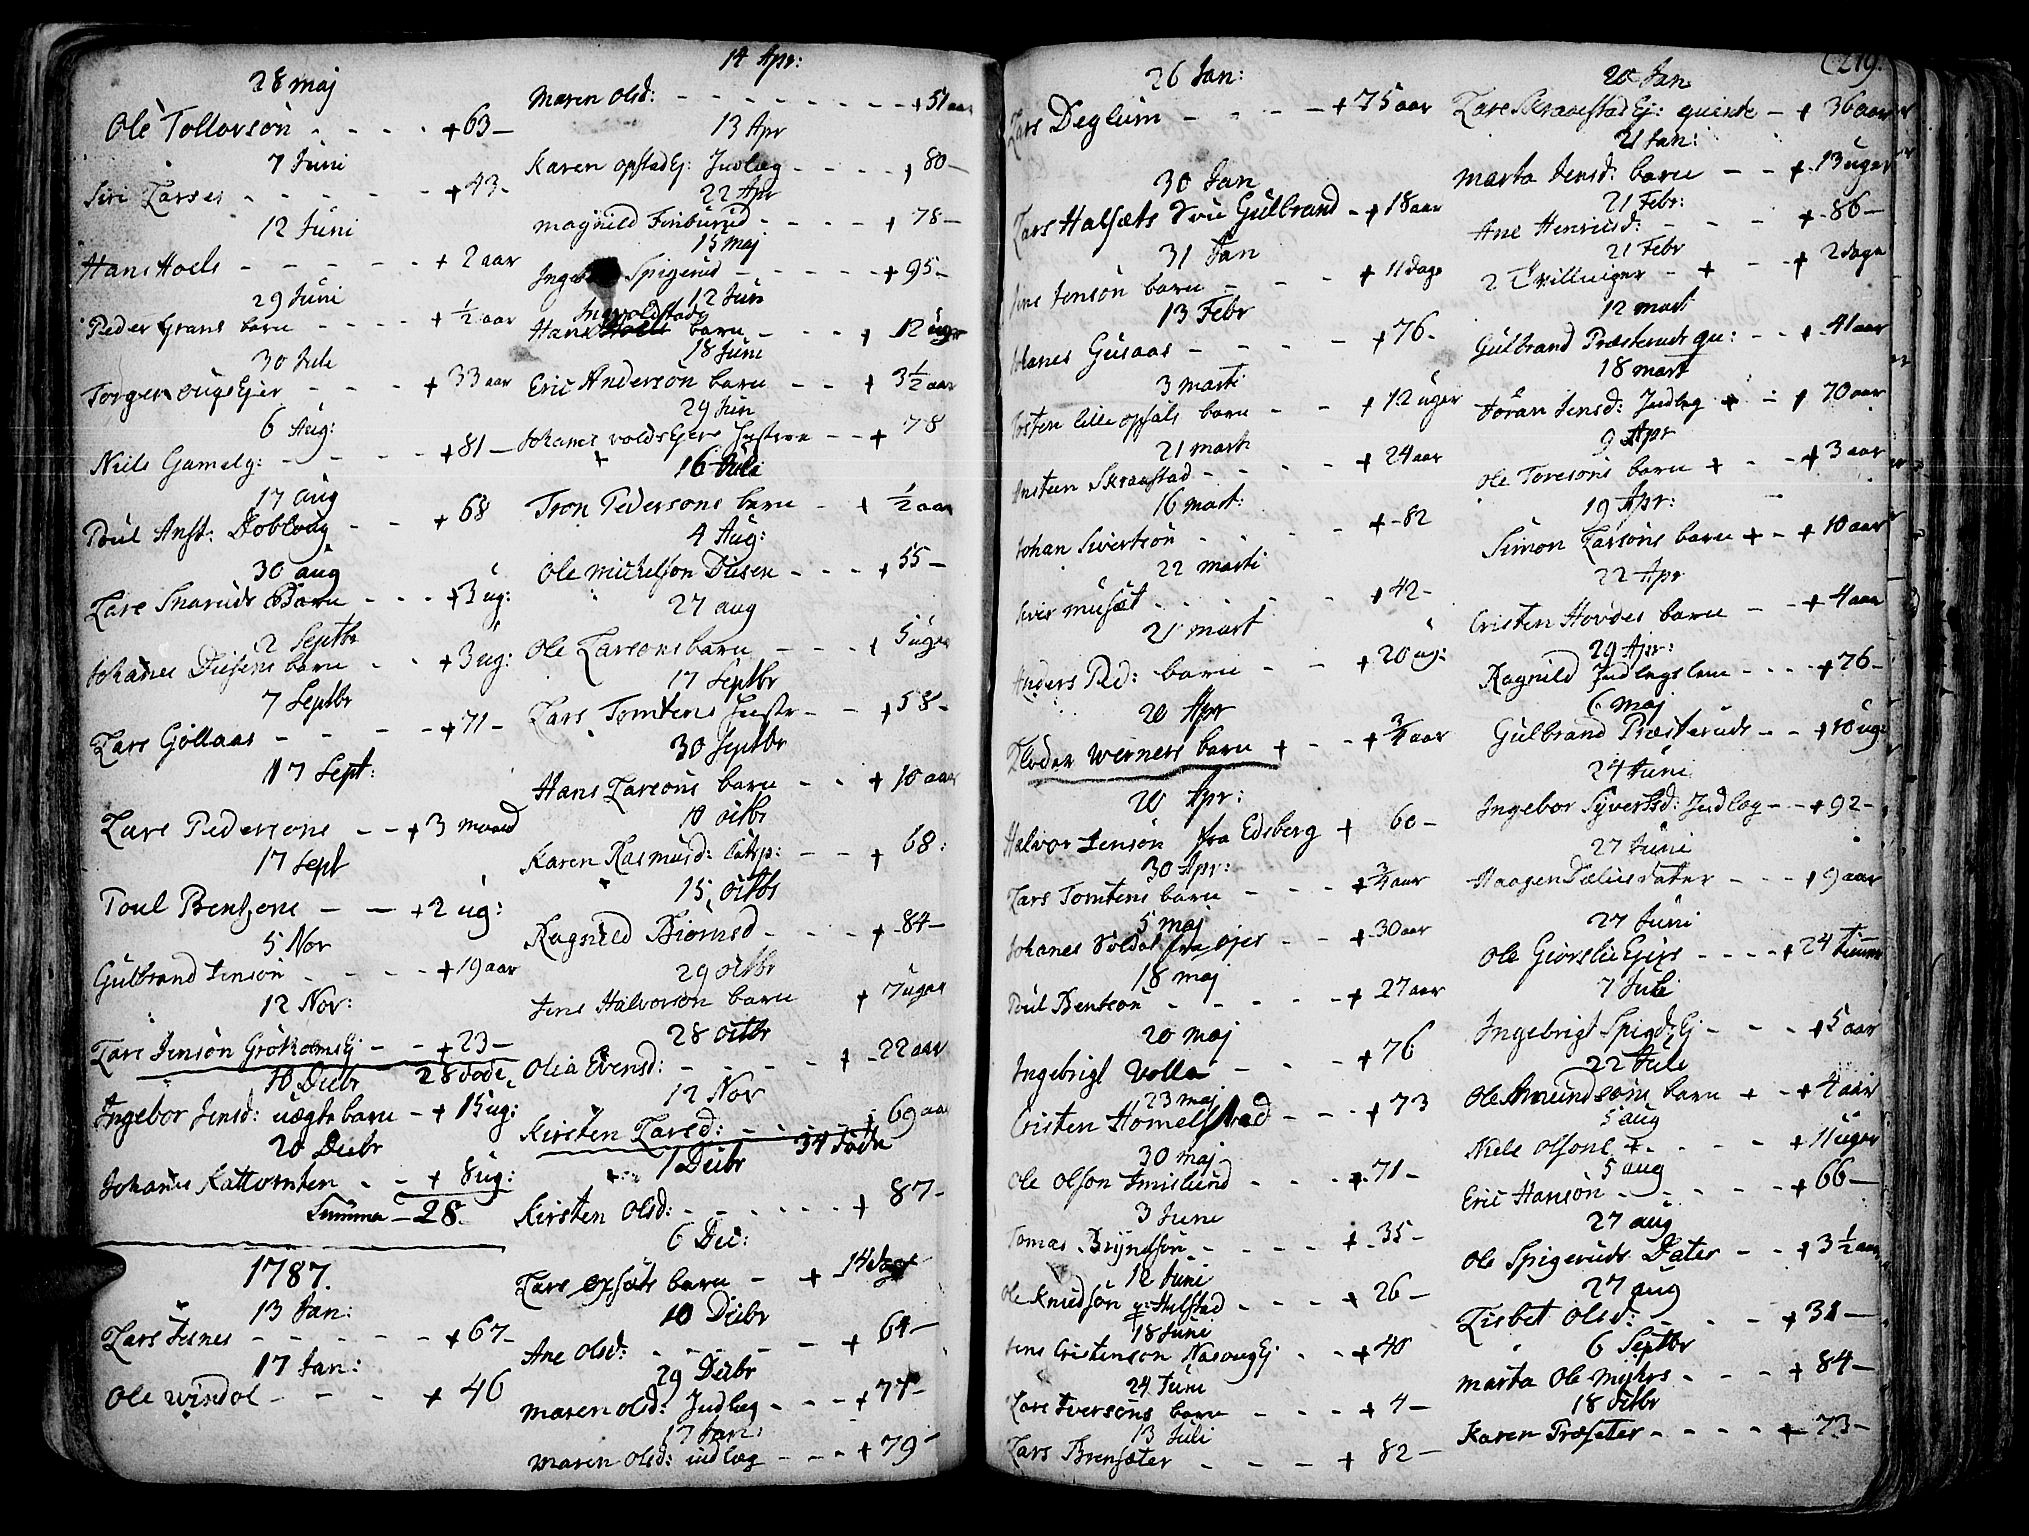 28 maj
Ole Tollorsön - - - - + 63 -
7 Juni
Siri Larses - - - - - - + 43 -
12 Juni
Hans Hoels - - - - - - + 2 aar
29 Juni
Peder Grans barn - - - - + ½ aar
30 Juli
Torger Ejer - - - + 33 aar
6 Aug:
Niels Gamelg: - - - - - + 81 -
17 aug
Poul Anst: Dobloug - - - + 68
30 aug
Lars Snaruds Barn - - - + 3 ug:
2 Septbr
Johanes Diesens barn - - + 3 ug:
7 Septbr
Lars Gollaas - - - - - + 71 -
17 Sept:
Lars Pedersons - - + 3 maaned
17 Sept
Poul Bentsens - - + 2 ug:
5 Nov
Gulbrand Jenson - - - - + 19 aar
12 Nov:
Lars Jenson Grökolms Ej - - + 23 -
10 Decbr 28 Föde
Ingebor Jensd: uægte barn - + 15 ug:
20 Decbr
Johanes Kattomten - - + 8 ug:
Summa - 28
1787.
13 Jan:
Lars Junes - - - - - - + 67 -
17 Jan:
Ole Windol - - - - + 46
14 Apr:
Maren Olsd: - - - - - - - - + 51 aar
13 Apr
Karen opstad Ej: Indlæg - - - - + 80 -
22 Apr
Magnild Finburud - - - - + 78 -
15 Maj
Inge Spigerud - - - - - - + 95 -
12 Jun
Ingvoldstad
Hans barn - - - + 12 uger
18 Juni
Eric Anderson barn - - + 3½ aar
29 Jun
Johanes volds Ejers Hustroe - - + 78
16 Juli
Tron Pedersons barn - + ½ aar
4 Aug:
Ole Michelson Diesen - - - + 55 -
27 aug
Ole Larsons barn - - - + 5 uger
17 Septbr
Lars Tomtens Hustr - - + 58 -
30 Septbr
Hans Larsons barn - - + 10 aar
10 octbr
Karen Rasmusd: - - + 68:
15 octbr
Ragnild Biörnsd - - - - + 84 -
29 octbr
Jens Halvorson barn + 7 uger
28 octbr
Olea Evensd: - - - - - + 22 aar
12 Nov
Kirsten Larsd: - - - - + 69 aar
1 Decbr 34 Föde
Kirsten Olsd: - - - - - - + 87 -
6 Dec:
Lars opsats barn - + 14 dage
10 Decbr
Ane Olsd: - - - - - + 64 -
29 Decbr
Maren Olsd: Indlæg - - - + 77 -
17 Jan:
Maren Olsd: indlæg - - - + 79 -
26 Jan:
Lars Deglum - - - - + 75 aar
30 Jan
Lars Halsæts Sön Gulbrand - + 18 aar
31 Jan
Jens Jenson barn - - - + 11 dage
13 Febr
Johanes Gusaas - - - - - + 76 -
3 marti
Josten lille opsals barn - - + 12 uger
21 marti
Ansteen Skraastad - - - - - + 24 aar
16 mart:
Johan Sivertson - - - - - + - 82
22 marti
Siver musæt - - - - - - + 42 -
21 mart
Anders Ped: barn - - + 20 ug:
20 Apr
Werners barn + - - + ¾ aar
20 Apr:
Halvor Jenson fra Edsberg + 60 -
30 Apr:
Lars Tomtens barn - - - + ¾ aar
5 maj
Johanes Soldat fra öjer - - + 30 aar
18 maj
Poul Bentson - - - - - - + 27 aar
20 maj
Ingebrigt Volla - - - + 76
23 maj
Cristen Homelstad - - - + 73
30 maj
Ole Olson Smislund - - - - + 71 -
3 Juni
Tomas Bryndson - - - - - + - 35 -
12 Juni
Ole Knudson Hulstad - - - - + 26 -
18 Juni
Jens Cristenson Naxoug Ej - - + 40
24 Juni
Lars Iversons barn - - - - + 4 -
13 Juli
Lars Brensæter - - - - + 82 -
(219.
20 Jan
Lars Skraastad Ej: qvinde - + 36 aar
21 Jan:
Marta Jensd: barn - - + 13 uger
21 Febr:
Ane Henricsd: - - - - + 86 -
21 Febr
2 Tvillinger - + - - + 2 dage
12 mart
Gulbrand Præsteruds qu: - - + 41 aar
18 mart
Göran Jensd: Indlæg + - + 70 aar
9 Apr
Ole Toresons barn + - - + 3 aar
19 Apr:
Simon Larsons barn + - + 10 aar
22 Apr
Cristen Hovdes barn - - + 4 aar
29 Apr:
Ragnild Indlægslem - - - - + 76 -
6 maj
Gulbrand Præsteruds - - + 10 uger
24 Juni
Ingebor Syvertsd: Indlæg - - + 92 -
27 Juni
Haagen dater - - - + 9 aar
27 Juni
Ole Giorslie Ejers - - - - + 24 timer
7 Juli
Ingebrigt Spigds: Ej - - - + 5 aar
22 Juli
Ole Amundsons barn + - + 4 aar
5 aug
Niels Olsons + - - - - + 11 uger
5 aug
Eric Hanson - - - - - + 66 -
27 aug
Ole Spigeruds Dater - - + 3½ aar
27 aug
Lisbet Olsd: - - - - + 31 -
6 Septbr
Marta Ole Myhrs - - - - + 84 -
18 Octbr
Karen Præseter - - - - - + 73 -